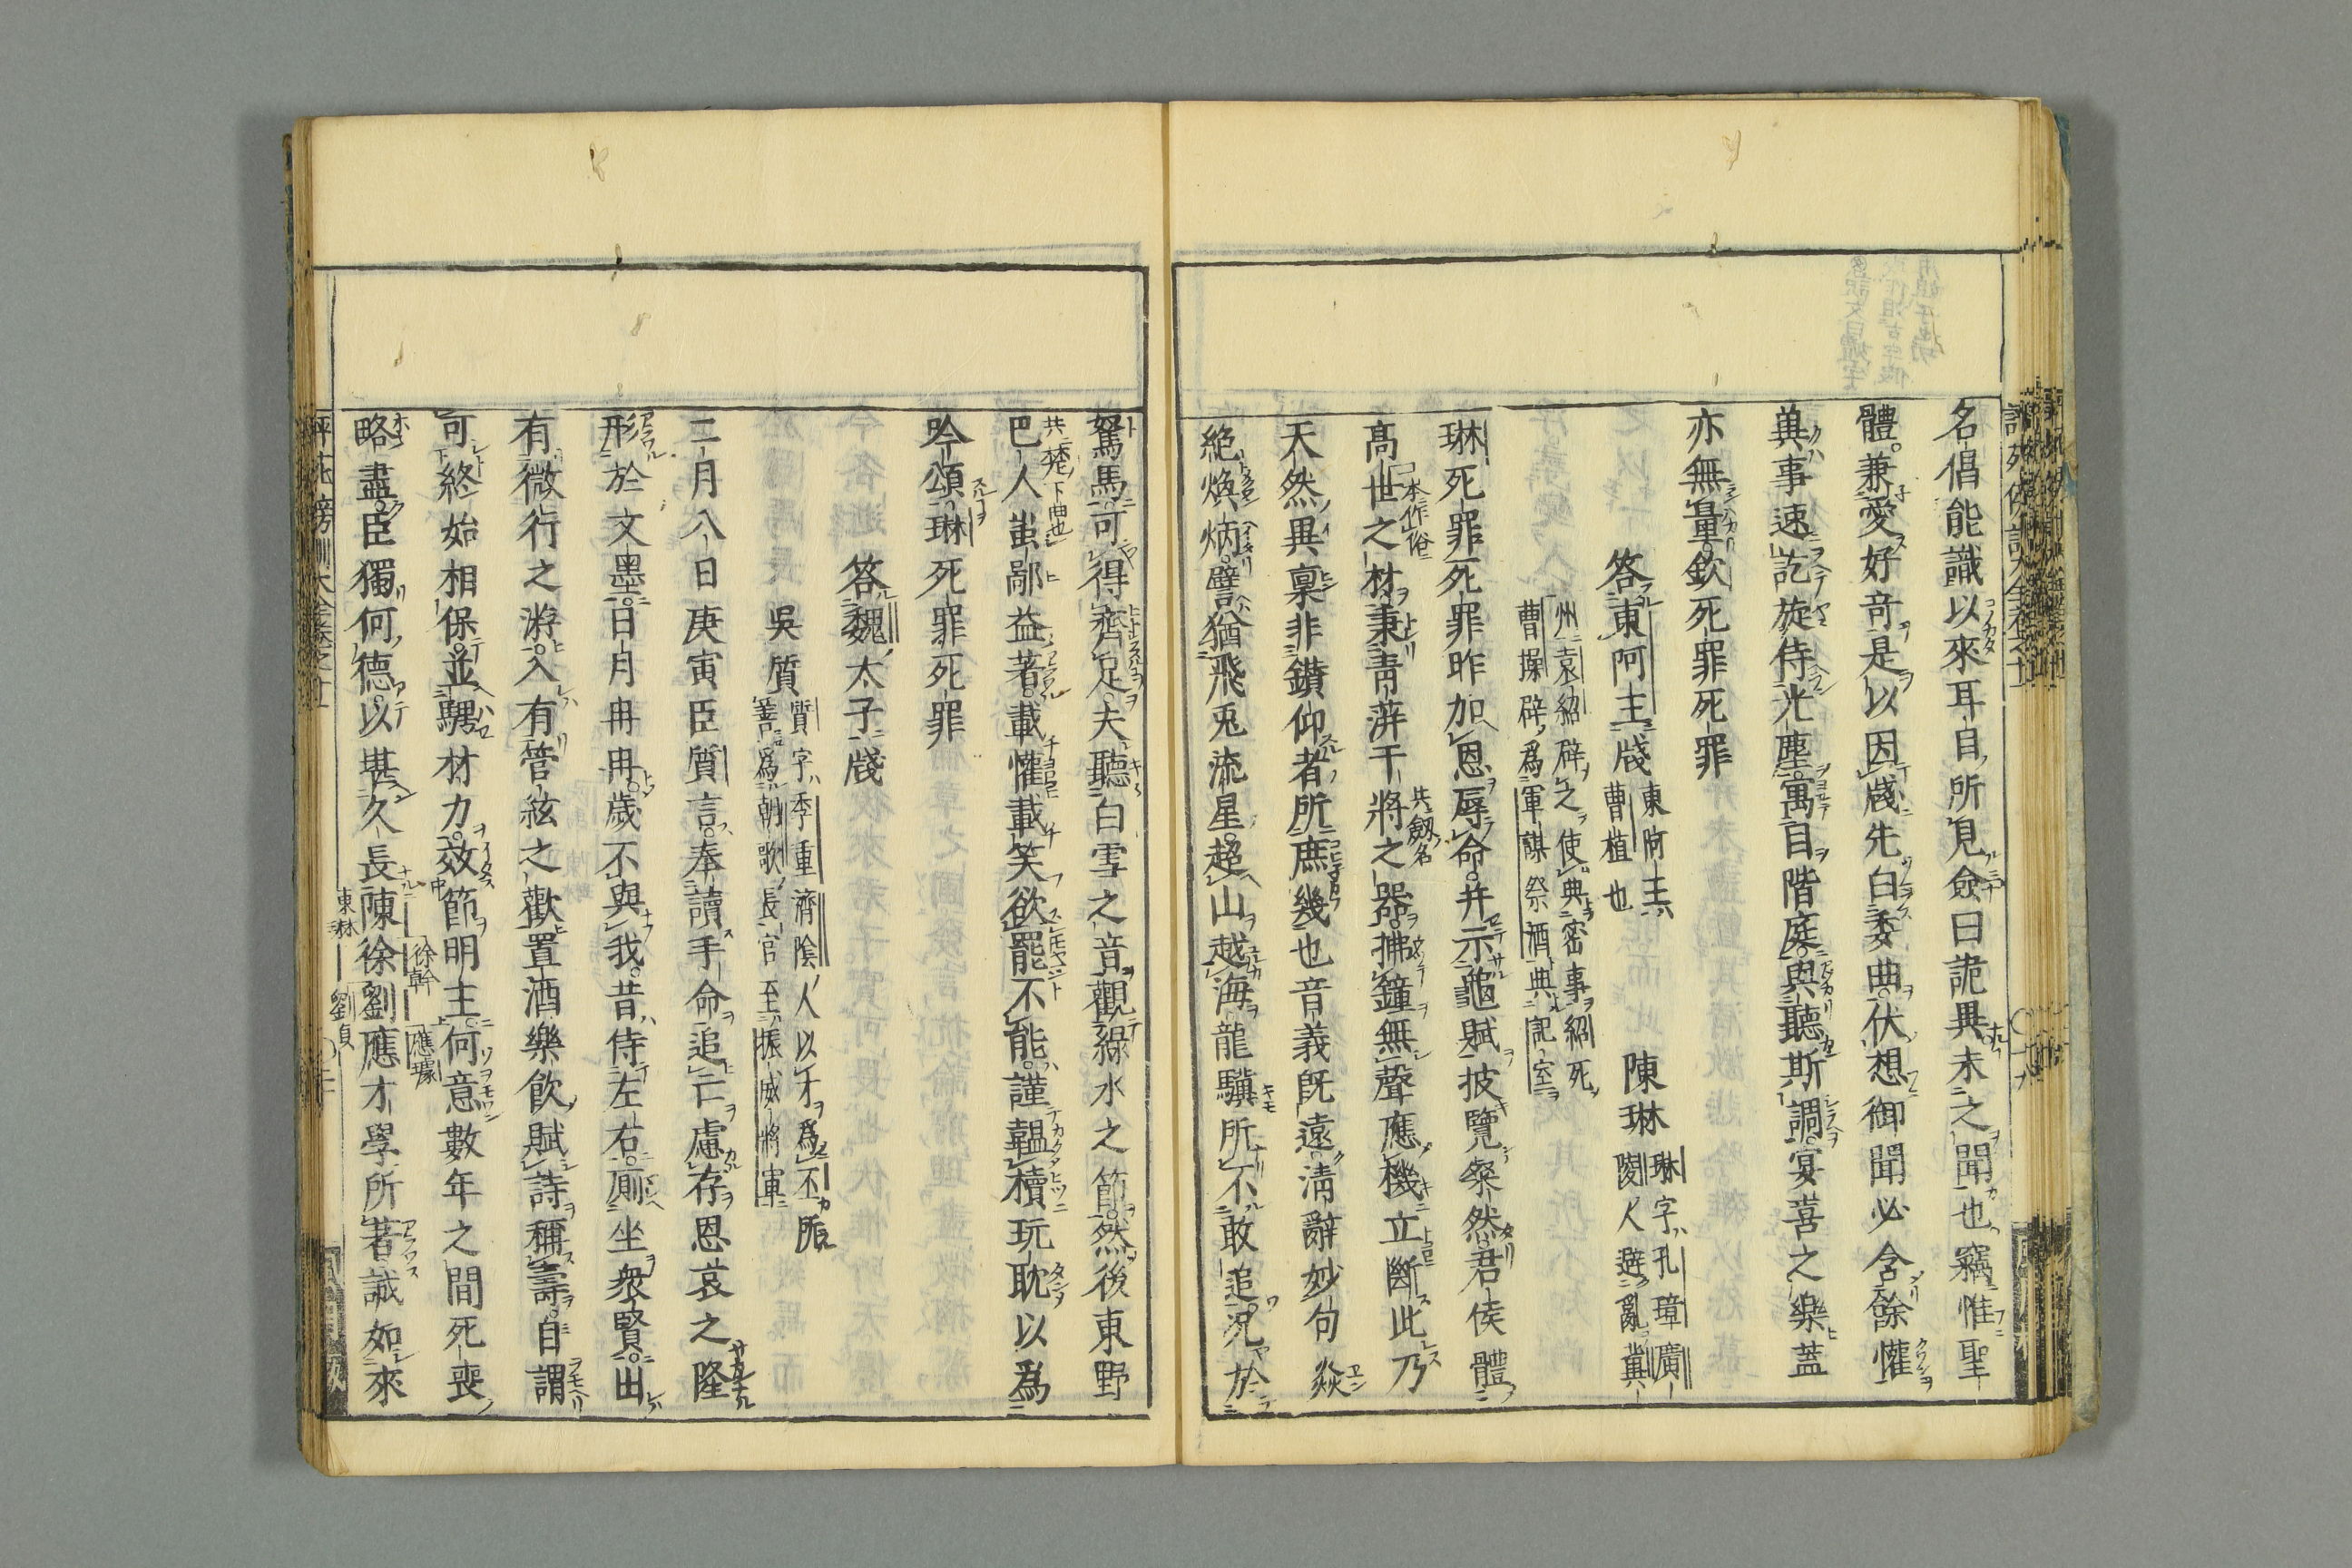 名倡能識以來耳目所見僉曰詭異未之聞也竊惟聖
體兼愛好奇是以因牋先白委曲伏想御聞必含餘懽
兾事速訖旋侍光塵寓目階庭與聽斯調宴喜之樂蓋
亦無量欽死罪死罪
答東阿王牋 東阿王曹植也 陳琳 琳字孔璋廣陵人避亂兾
州袁紹辟之使典密事紹死曹操辟為軍謀祭酒典記室
琳死罪死罪昨加恩辱命并示龜賦披覽粲然君侯體
高世之材秉青萍干將之器拂鐘無聲應機立斷此乃
本作俗
共劔名
天然異稟非鑚仰者所庶幾也音義既遠清辭妙句焱
絶煥炳譬猶飛兎流星超山越海龍驥所不敢追況於
駑馬可得齊足夫聽白雪之音觀綠水之節然後東野
巴人蚩鄙益著載懽載笑欲罷不能謹韞櫝玩耽以為
共楚下曲也
吟頌琳死罪死罪
答魏太子牋
吳質 質字季重濟陰人以才為丕所善為朝歌長官至振威將軍
二月八日庚寅臣質言奉讀手命追亡慮存恩哀之隆
形於文墨日月冉冉歲不與我昔侍左右廁坐衆賢出
有微行之游入有管絃之歡置酒樂飲賦詩稱壽自謂
可終始相保並騁材力效節明主何意數年之間死喪
略盡臣獨何德以堪久長陳徐劉應才學所著誠如來
徐幹
應璩
東琳
劉貞